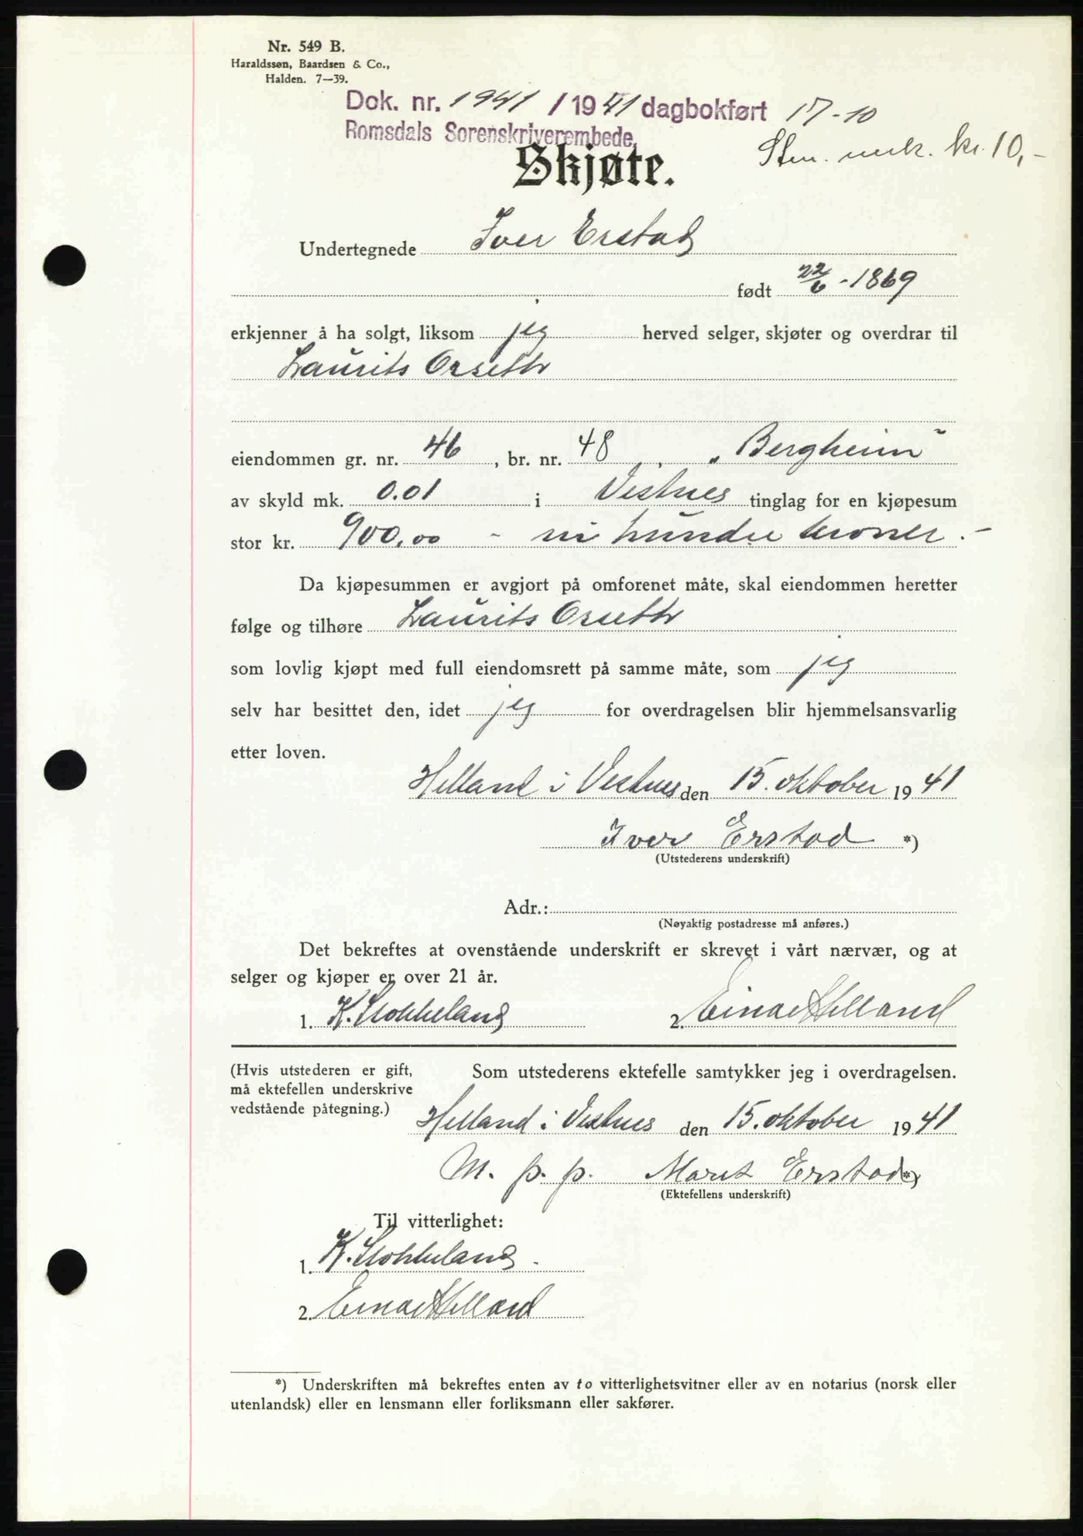 Nr. 549 B.
Haraldssøn, Baardsen & Co.,
Halden. 7—39.
Dok. nr. 1941 / 1941 dagbokført 17-10
Romsdals Sorenskriverembede,
Stm. merk. kr. 10,-
Skjøte.
Undertegnede Iver Erstad
født 22/6-1869
erkjenner å ha solgt, liksom jeg herved selger, skjøter og overdrar til
Laurits Orseth
eiendommen gr. nr. 46, br. nr. 48, „Bergheim"
av skyld mk. 0.01 i Vestnes tinglag for en kjøpesum
stor kr. 900,00 - ni hundre kroner.-
Da kjøpesummen er avgjort på omforenet måte, skal eiendommen heretter
følge og tilhøre Laurits Orseth
som lovlig kjøpt med full eiendomsrett på samme måte, som jeg
selv har besittet den, idet jeg for overdragelsen blir hjemmelsansvarlig
etter loven.
Helland i Vestnes den 15. oktober 1941
Iver Erstad *)
(Utstederens underskrift)
Adr.:
(Nøyaktig postadresse må anføres.)
Det bekreftes at ovenstående underskrift er skrevet i vårt nærvær, og at
selger og kjøper er over 21 år.
1. K. Stokkeland 2. Einar Helland
(Hvis utstederen er gift,
må ektefellen underskrive
vedstående påtegning.)
Som utstederens ektefelle samtykker jeg i overdragelsen.
Helland i Vestnes den 15. oktober 1941
M. p. p. Marit Erstad *)
(Ektefellens underskrift)
Til vitterlighet:
1. K. Stokkeland.
2. Einar Helland
*) Underskriften må bekreftes enten av to vitterlighetsvitner eller av en notarius (norsk eller
utenlandsk) eller en lensmann eller forliksmann eller sakfører.